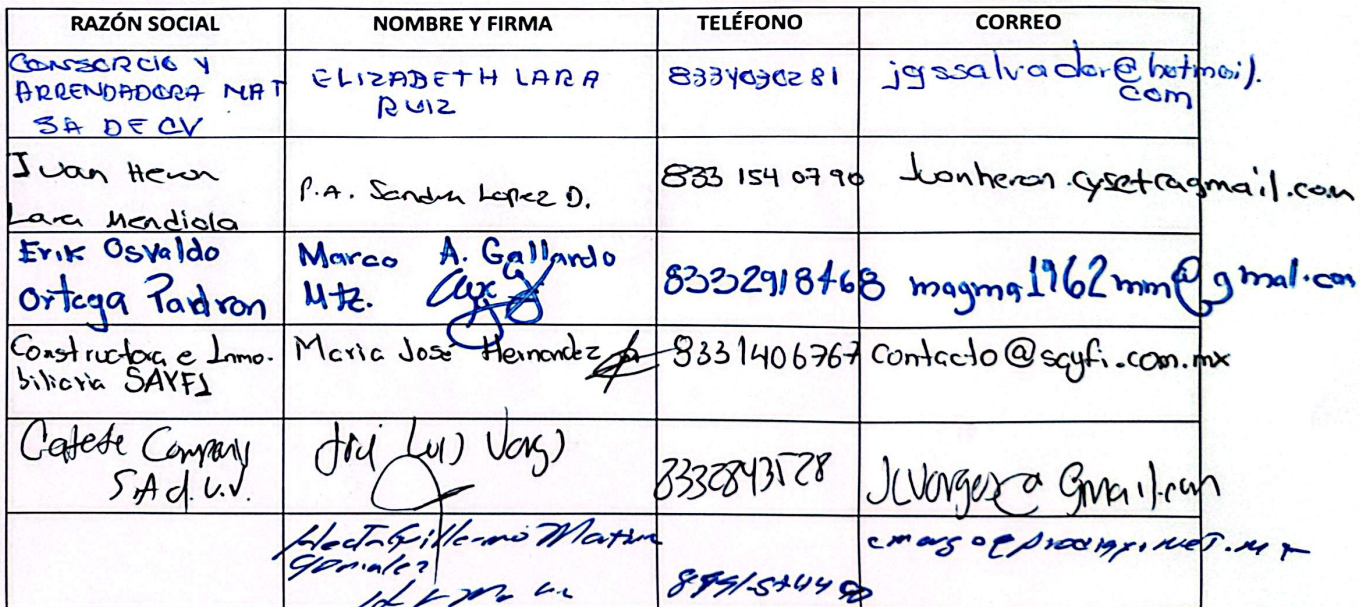 RAZÓN SOCIAL NOMBRE Y FIRMA TELÉFONO CORREO
CONSORCIO Y
ARRENDADORA MAT
SA DE CV
ELIZABETH LARA
RUIZ
8334030281
jgssalvador@hotmail.
com
Juan Heron
Lara Mendiola
P.A. Sandra Lopez D.
833 154 07 90
Juanheron.cysetragmail.com
Erik Osvaldo
Ortega Padron
Marco A. Gallardo
Mtz.
83332918468
magma1962mm@gmal.com
Constructora e Inmo-
biliaria SAYFI
Maria José Hernandez
8331406767
contacto@sayfi.com.mx
Company
S.A d. C.V.
Luis
Hector Guillermo
Gonzalez